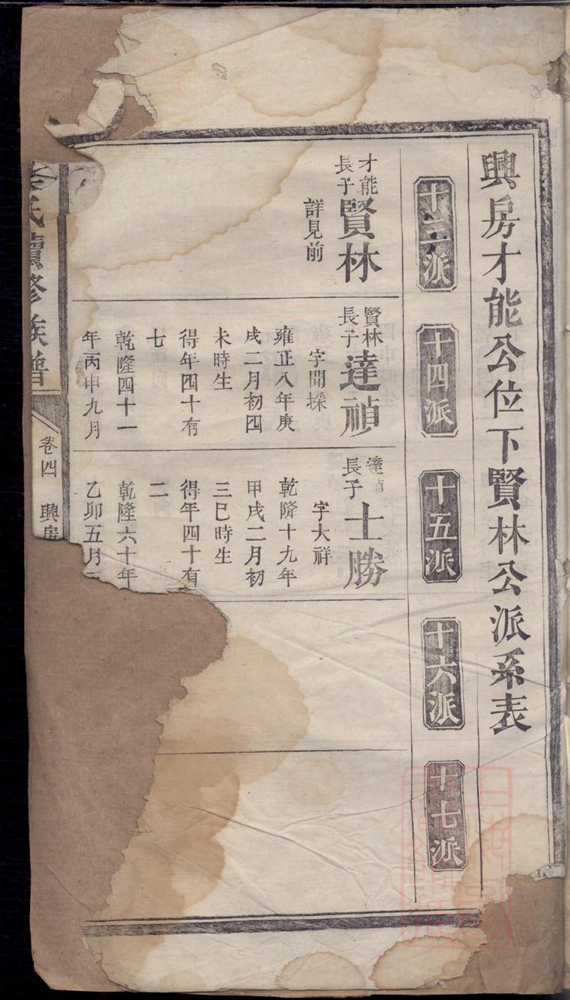 興房才能公位下賢林公派系表
十三派
十四派
十五派
十六派
十七派
才能
長子
賢林
詳見前
賢林
長子
達禎
字開
雍正八年庚
戌二月初四
未時生
得年四十有
七
乾隆四十一
年丙申九月
達禎
長子
士勝
字大祥
乾隆十九年
甲戌二月初
三巳時生
得年四十有
二
乾隆六十年
乙卯五月
氏續修族譜
卷四
興房